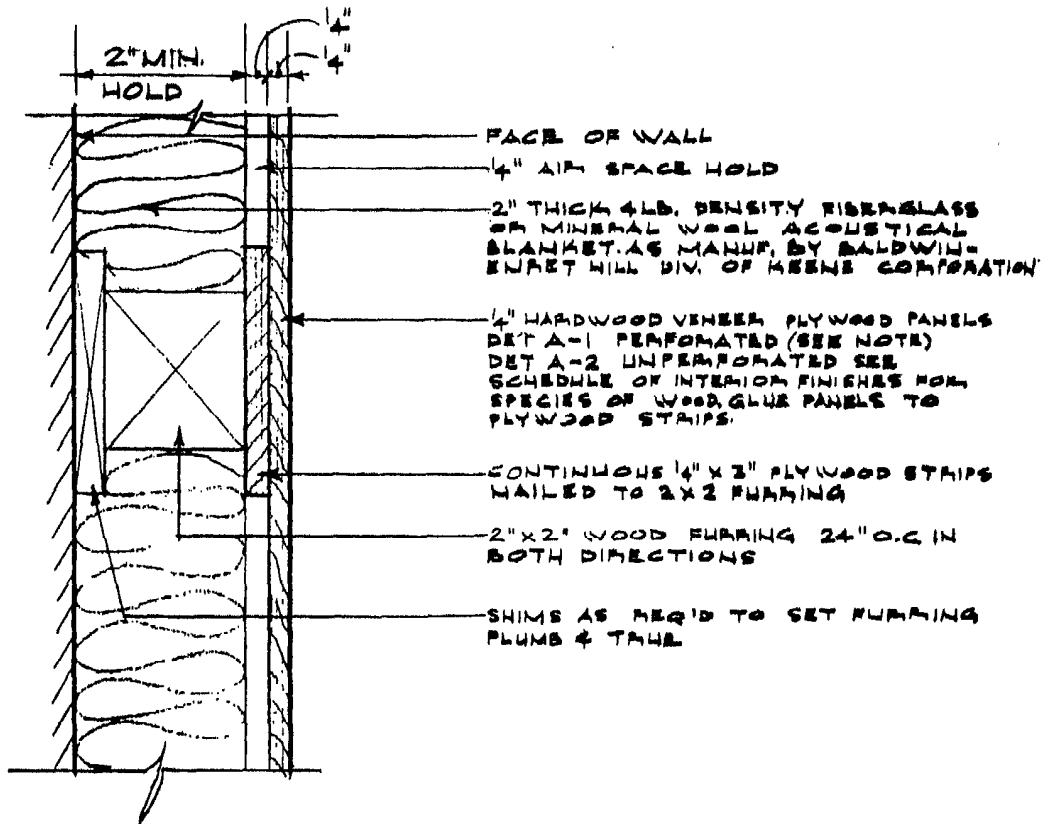 1/4"
1/4"
2" MIN.
HOLD
FACE OF WALL
1/4" AIR SPACE HOLD
2" THICK 4LB. DENSITY FIBERGLASS
OR MINERAL WOOL ACOUSTICAL
BLANKET. AS MANUF. BY BALDWIN-
ENRET HILL DIV. OF KEENE CORPORATION
1/4" HARDWOOD VENEER PLYWOOD PANELS
DET A-1 PERFORATED (SEE NOTE)
DET A-2 UNPERFORATED SEE
SCHEDULE OF INTERIOR FINISHES FOR
SPECIES OF WOOD, GLUE PANELS TO
PLYWOOD STRIPS.
CONTINUOUS 1/4" X 3" PLYWOOD STRIPS
NAILED TO 2X2 FURRING
2" X 2" WOOD FURRING 24" O.C IN
BOTH DIRECTIONS
SHIMS AS REQ'D TO SET FURRING
PLUMB & TRUE